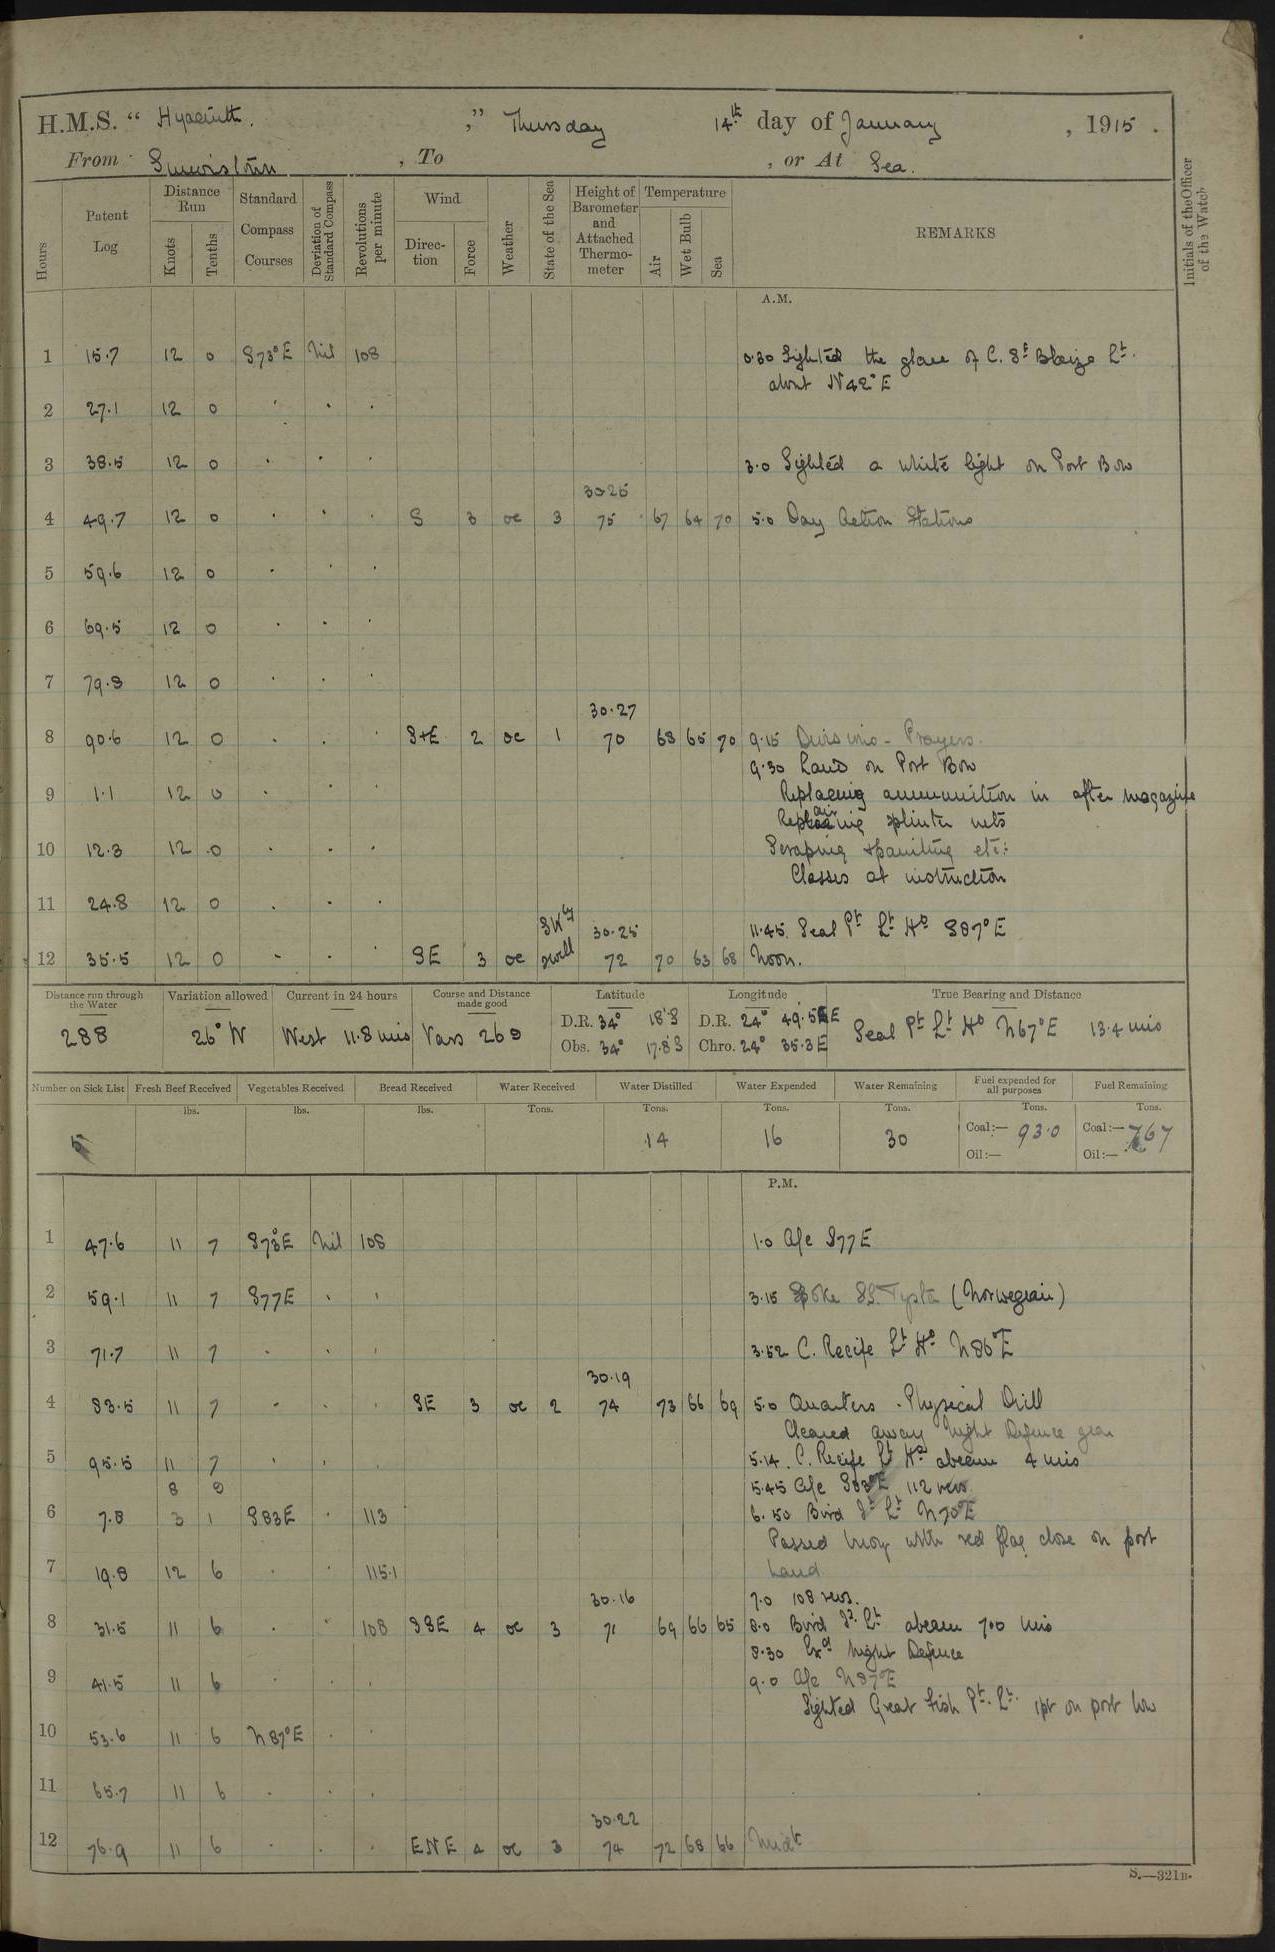 H.M.S. “ Hyacinth. ,” Thursday 14th day of January , 1915 .
From Simonstown , To , or At Sea.
Hours
Patent Log
Distance Run
Knots
Tenths
Standard Compass Courses
Deviation of Standard Compass
Revolutions per minute
Wind
Direction
Force
Weather
State of the Sea
Height of Barometer and Attached Thermometer
Temperature
Air
Wet Bulb
Sea
REMARKS
Initials of the Officer of the Watch
A.M.
1 15.7 12 0 S73°E Nil 108 0.30 Sighted the glare of C. St Blaize Lt.
about N42°E
2 27.1 12 0 " " "
3 38.5 12 0 " " " 3.0 Sighted a white light on Port Bow
30.25
4 49.7 12 0 " " " S 3 oc 3 75 67 64 70 5.0 Day Action Stations
5 59.6 12 0 " " "
6 69.5 12 0 " " "
7 79.9 12 0 " " "
30.27
8 90.6 12 0 " " " S+E 2 oc 1 70 68 65 70 9.15 Divisions - Prayers.
9.30 Land on Port Bow
9 1.1 12 0 " " " Replacing ammunition in after magazine
Repairing splinter nets
10 12.3 12 0 " " " Scraping & painting etc:
Classes at instruction
11 24.8 12 0 " " "
SWly 30.25 11.45 Seal Pt Lt Ho S87°E
12 35.5 12 0 " " " SE 3 oc swell 72 70 63 68 Noon.
Distance run through the Water
288
Variation allowed
26° W
Current in 24 hours
West 11.8 mis
Course and Distance made good
Vars 269
Latitude
D.R. 34° 18'S
Obs. 34° 17.8'S
Longitude
D.R. 24° 49.5E
Chro. 24° 35.3E
True Bearing and Distance
Seal Pt Lt Ho N67°E 13.4 mis
Number on Sick List
5
Fresh Beef Received
lbs.
Vegetables Received
lbs.
Bread Received
lbs.
Water Received
Tons.
Water Distilled
Tons.
14
Water Expended
Tons.
16
Water Remaining
Tons.
30
Fuel expended for all purposes
Tons.
Coal:— 93.0
Oil:—
Fuel Remaining
Tons.
Coal:— 767
Oil:—
P.M.
1 47.6 11 7 S73°E Nil 108 1.0 A/c S77E
2 59.1 11 7 S77E " " 3.15 Spoke SS. (Norwegian)
3 71.7 11 7 " " " 3.52 C. Recife Lt Ho N86°E
30.19
4 83.5 11 7 " " " SE 3 oc 2 74 73 66 69 5.0 Quarters . Physical Drill
Cleared away Night Defence gear
5 95.5 11 7 " " " 5.14. C. Recife Lt Ho abeam 4 mis
8 9 5.45 A/c S83°E 112 revs
6 7.8 3 1 S83E " 113 6.50 Bird Id Lt N70°E
Passed buoy with red flag close on port
7 19.8 12 6 " " 115.1 hand
30.16 7.0 108 revs.
8 31.5 11 6 " " 108 SSE 4 oc 3 71 69 66 65 8.0 Bird Id Lt abeam 7.0 mis
8.30 Exd Night Defence
9 41.5 11 6 " " " 9.0 A/c N87°E
Sighted Great Fish Pt. Lt. 1pt on port bow
10 53.6 11 6 N87°E " "
11 65.7 11 6 " " "
30.22
12 76.9 11 6 " " " ENE 4 oc 3 74 72 68 66 Midt
S.—321B.